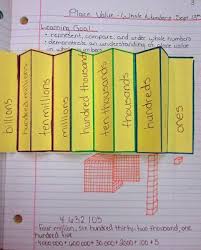 Place Value - Whole Numbers Sept
Learning Goal
- represent, compare, and order whole numbers
- demonstrate an understanding of place value
billions
hundred millions
ten millions
millions
hundred thousands
ten thousands
thousands
hundreds
ones
4 632 105
four million, six hundred thirty-two thousand, one
hundred five
4000 000 + 600 000 + 30 000 + 2000 + 100 + 5